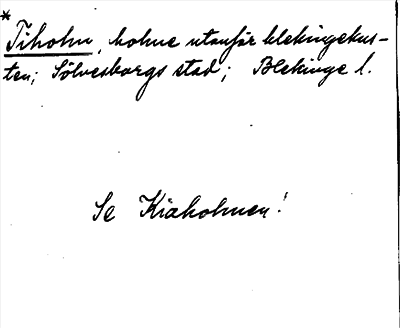 *
Tiholm, holme utanför blekingekus-
ten; Sölvesborgs stad; Blekinge l.
Se Kiaholmen!